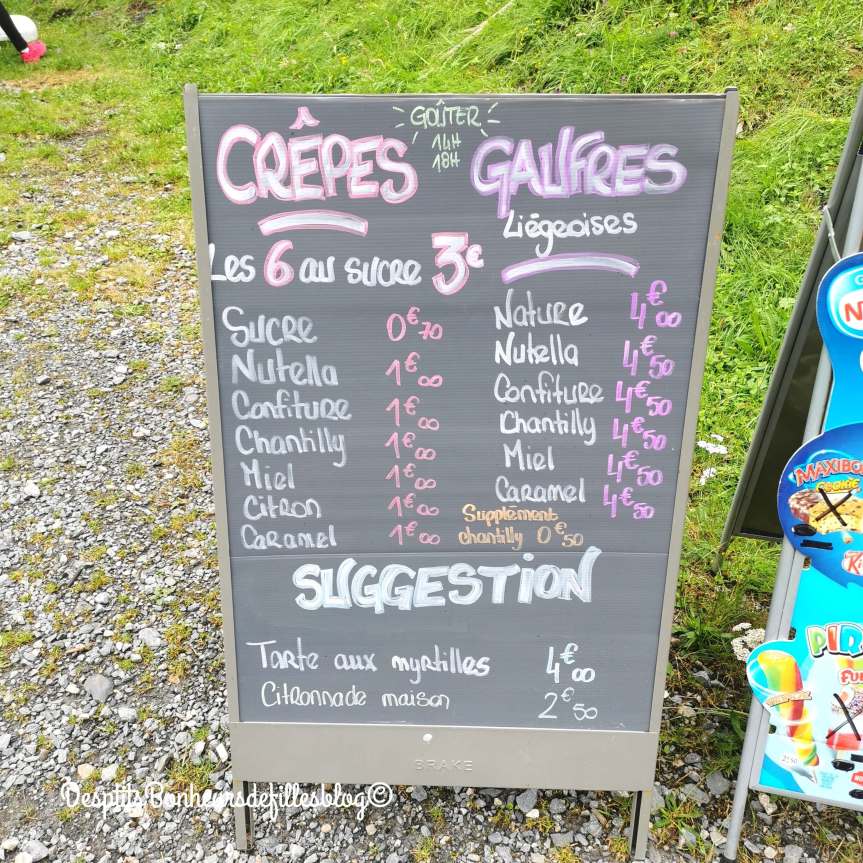 GOÛTER
14H
18H
CRÊPES
Les 6 au sucre 3€
Sucre 0€70
Nutella 1€00
Confiture 1€00
Chantilly 1€00
Miel 1€00
Citron 1€00
Caramel 1€00
GAUFRES
Liégeoises
Nature 4€00
Nutella 4€50
Confiture 4€50
Chantilly 4€50
Miel 4€50
Caramel 4€50
Supplément
chantilly 0€50
SUGGESTION
Tarte aux myrtilles 4€00
Citronnade maison 2€50
BRAKE
DesptitsBonheursdefillesblog©
COOKIE